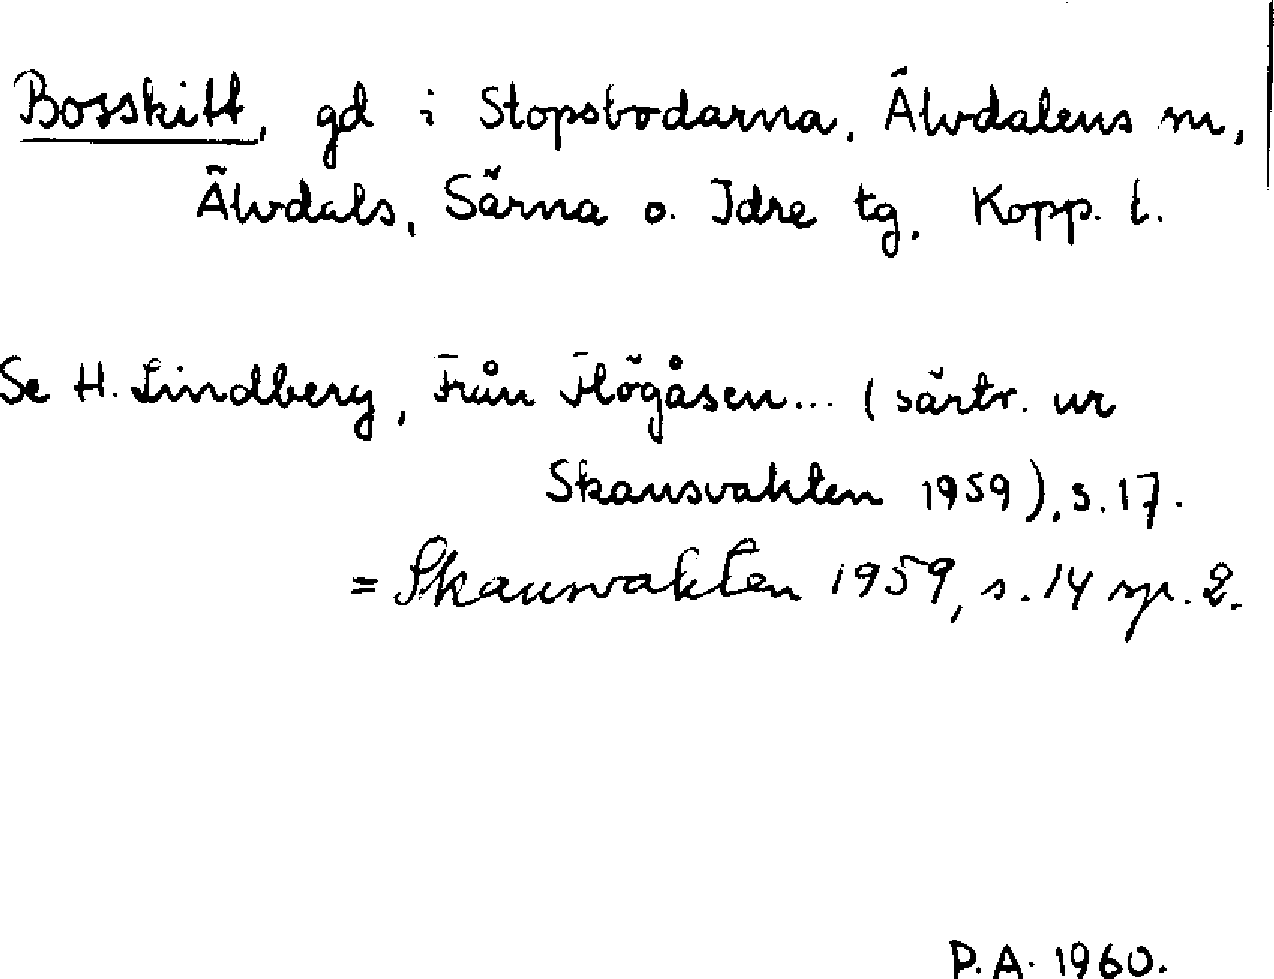 Bosskitt, gd i Stopsbodarna, Älvdalens sn,
Älvdals, Särna o. Idre tg, Kopp. l.
Se H. Lindberg, Från Högåsen... (särtr. ur
Skansvakten 1959), s. 17.
= Skansvakten 1959, s. 14 sp. 2.
P.A. 1960.